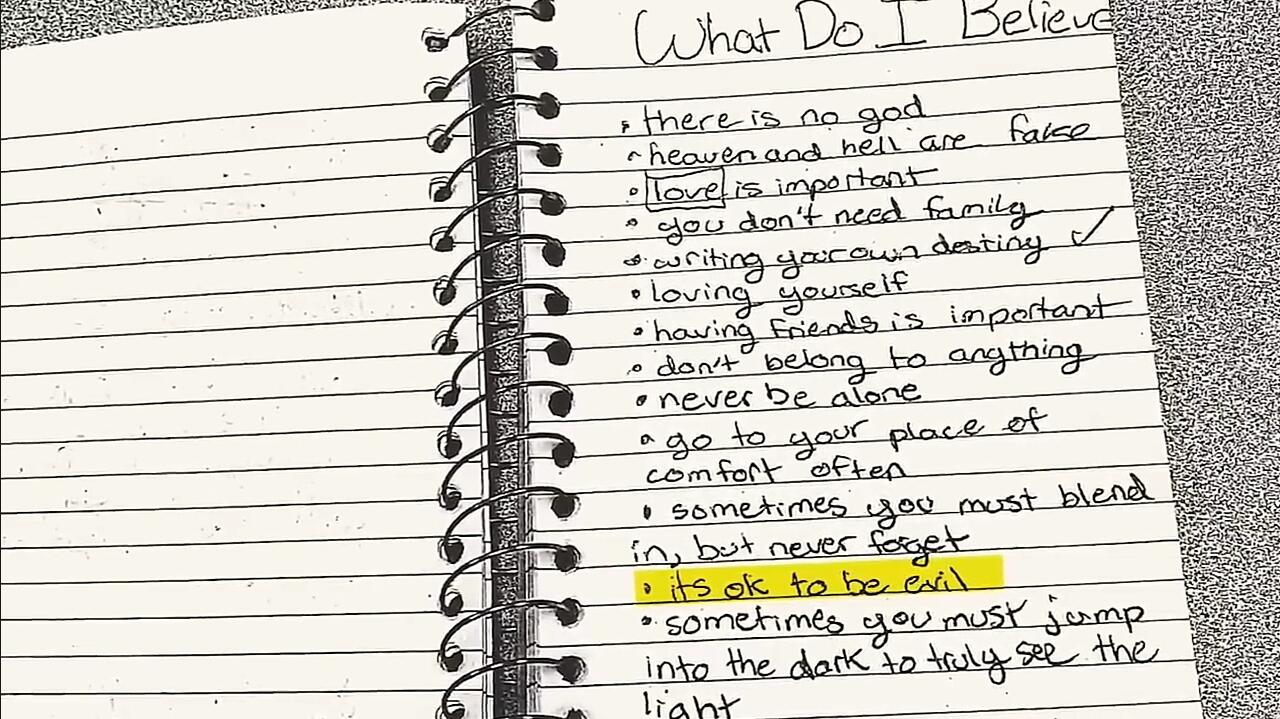 What Do I Believe
• there is no god
• heaven and hell are false
• love is important
• you don't need family
• writing your own destiny ✓
• loving yourself
• having friends is important
• don't belong to anything
• never be alone
• go to your place of
comfort often
• sometimes you must blend
in, but never forget
• its ok to be evil
• sometimes you must jump
into the dark to truly see the
light